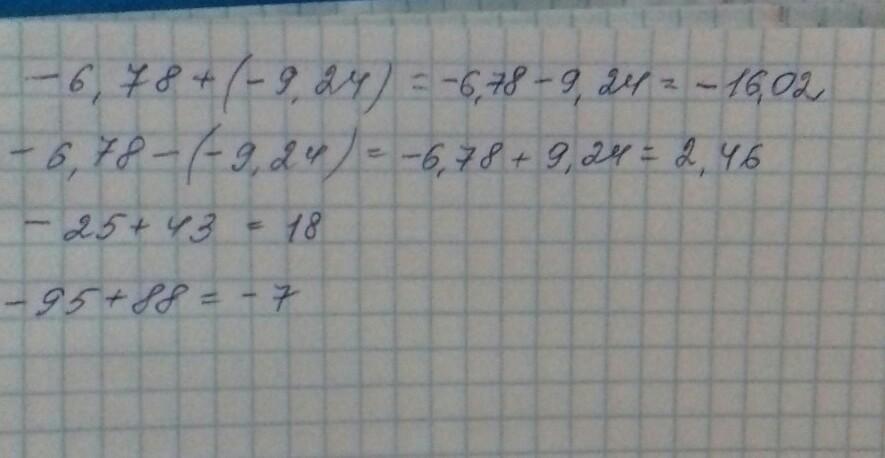 -6,78+(-9,24)=-6,78-9,24=-16,02
-6,78-(-9,24)=-6,78+9,24=2,46
-25+43=18
-95+88=-7